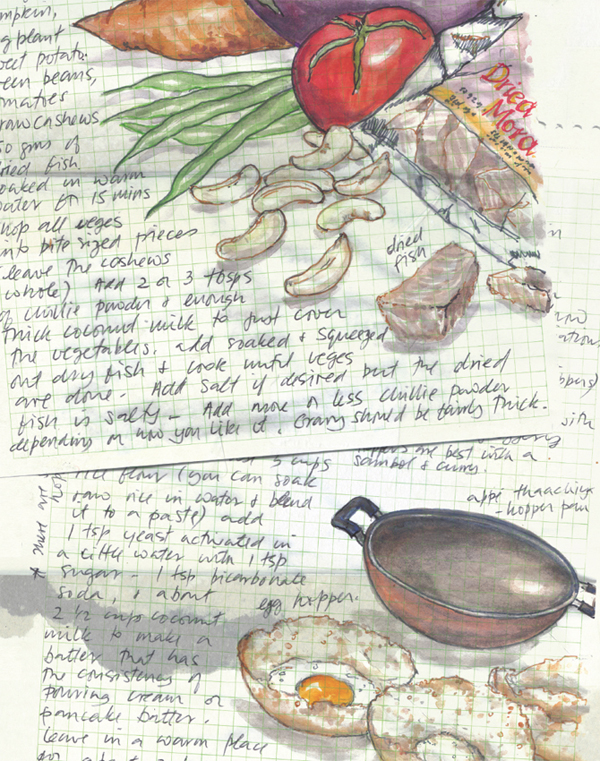 mpkin,
g plant
eet potato
een beans,
omatoes
raw cashews
50 gms of
ried fish
oaked in warm
ater for 15 mins
hop all veges
into bite sized pieces
leave the cashews
whole) Add 2 or 3 tbsps
of chillie powder & enough
thick coconut milk to just cover
the vegetables. add soaked & squeezed
out dry fish & cook until veges
are done. Add salt if desired but the dried
fish is salty - Add more or less chillie powder
depending on how you like it. Gravy should be fairly thick.
Dried
Mora
dried
fish
are best with a
sambol & curry.
rice flour (you can soak
raw rice in water & blend
it to a paste) add
1 tsp yeast activated in
a little water with 1 tsp
sugar - 1 tsp bicarbonate
soda, & about
2 1/2 cups coconut
milk to make a
batter that has
the consistency of
pouring cream or
pancake batter.
leave in a warm place
egg hopper.
appé thaachiya
- hopper pan
with